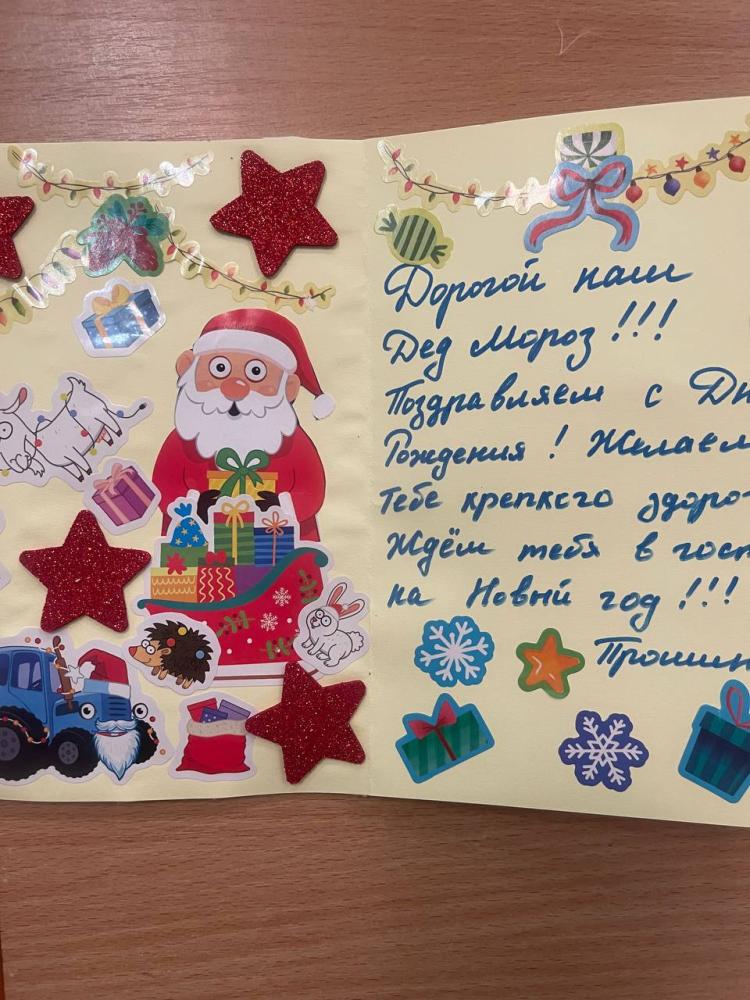 Дорогой наш
Дед Мороз!!!
Поздравляем с Дн
Рождения! Желаем
тебе крепкого здоро
Ждём тебя в гост
на Новый год!!!
Прошин